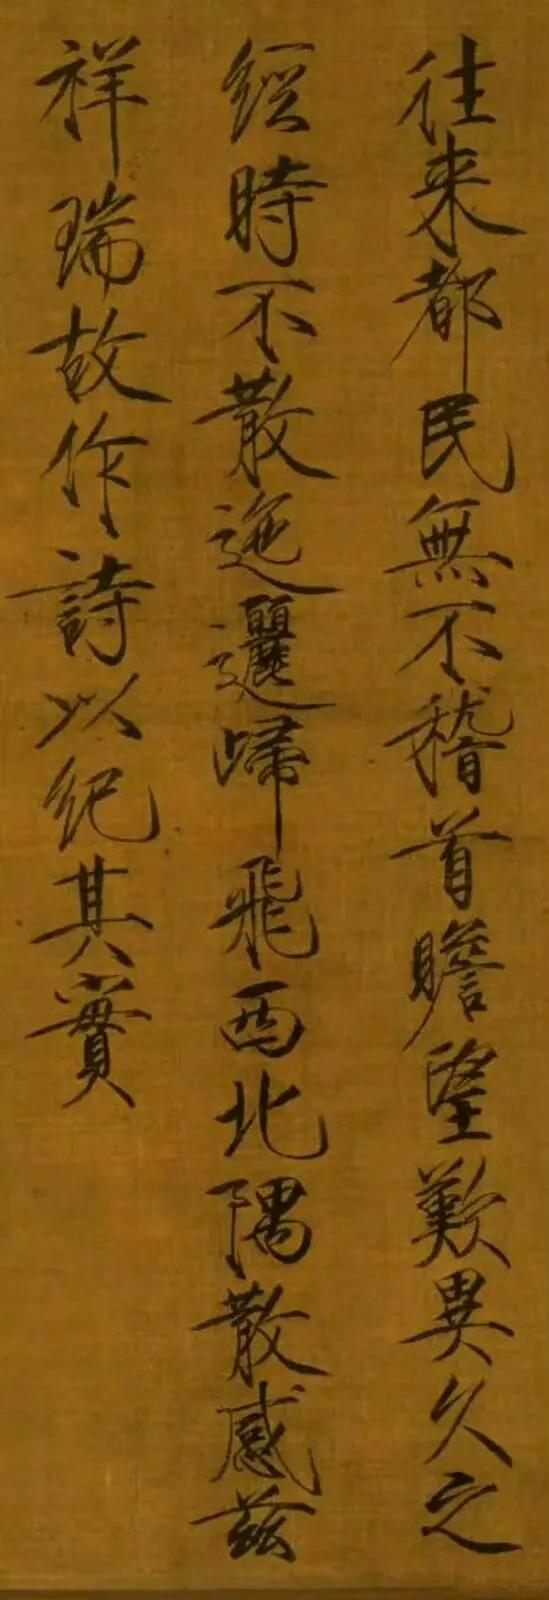 往来都民無不稽首瞻望歎異久之
經時不散迤邐歸飛西北隅散感茲
祥瑞故作詩以紀其實